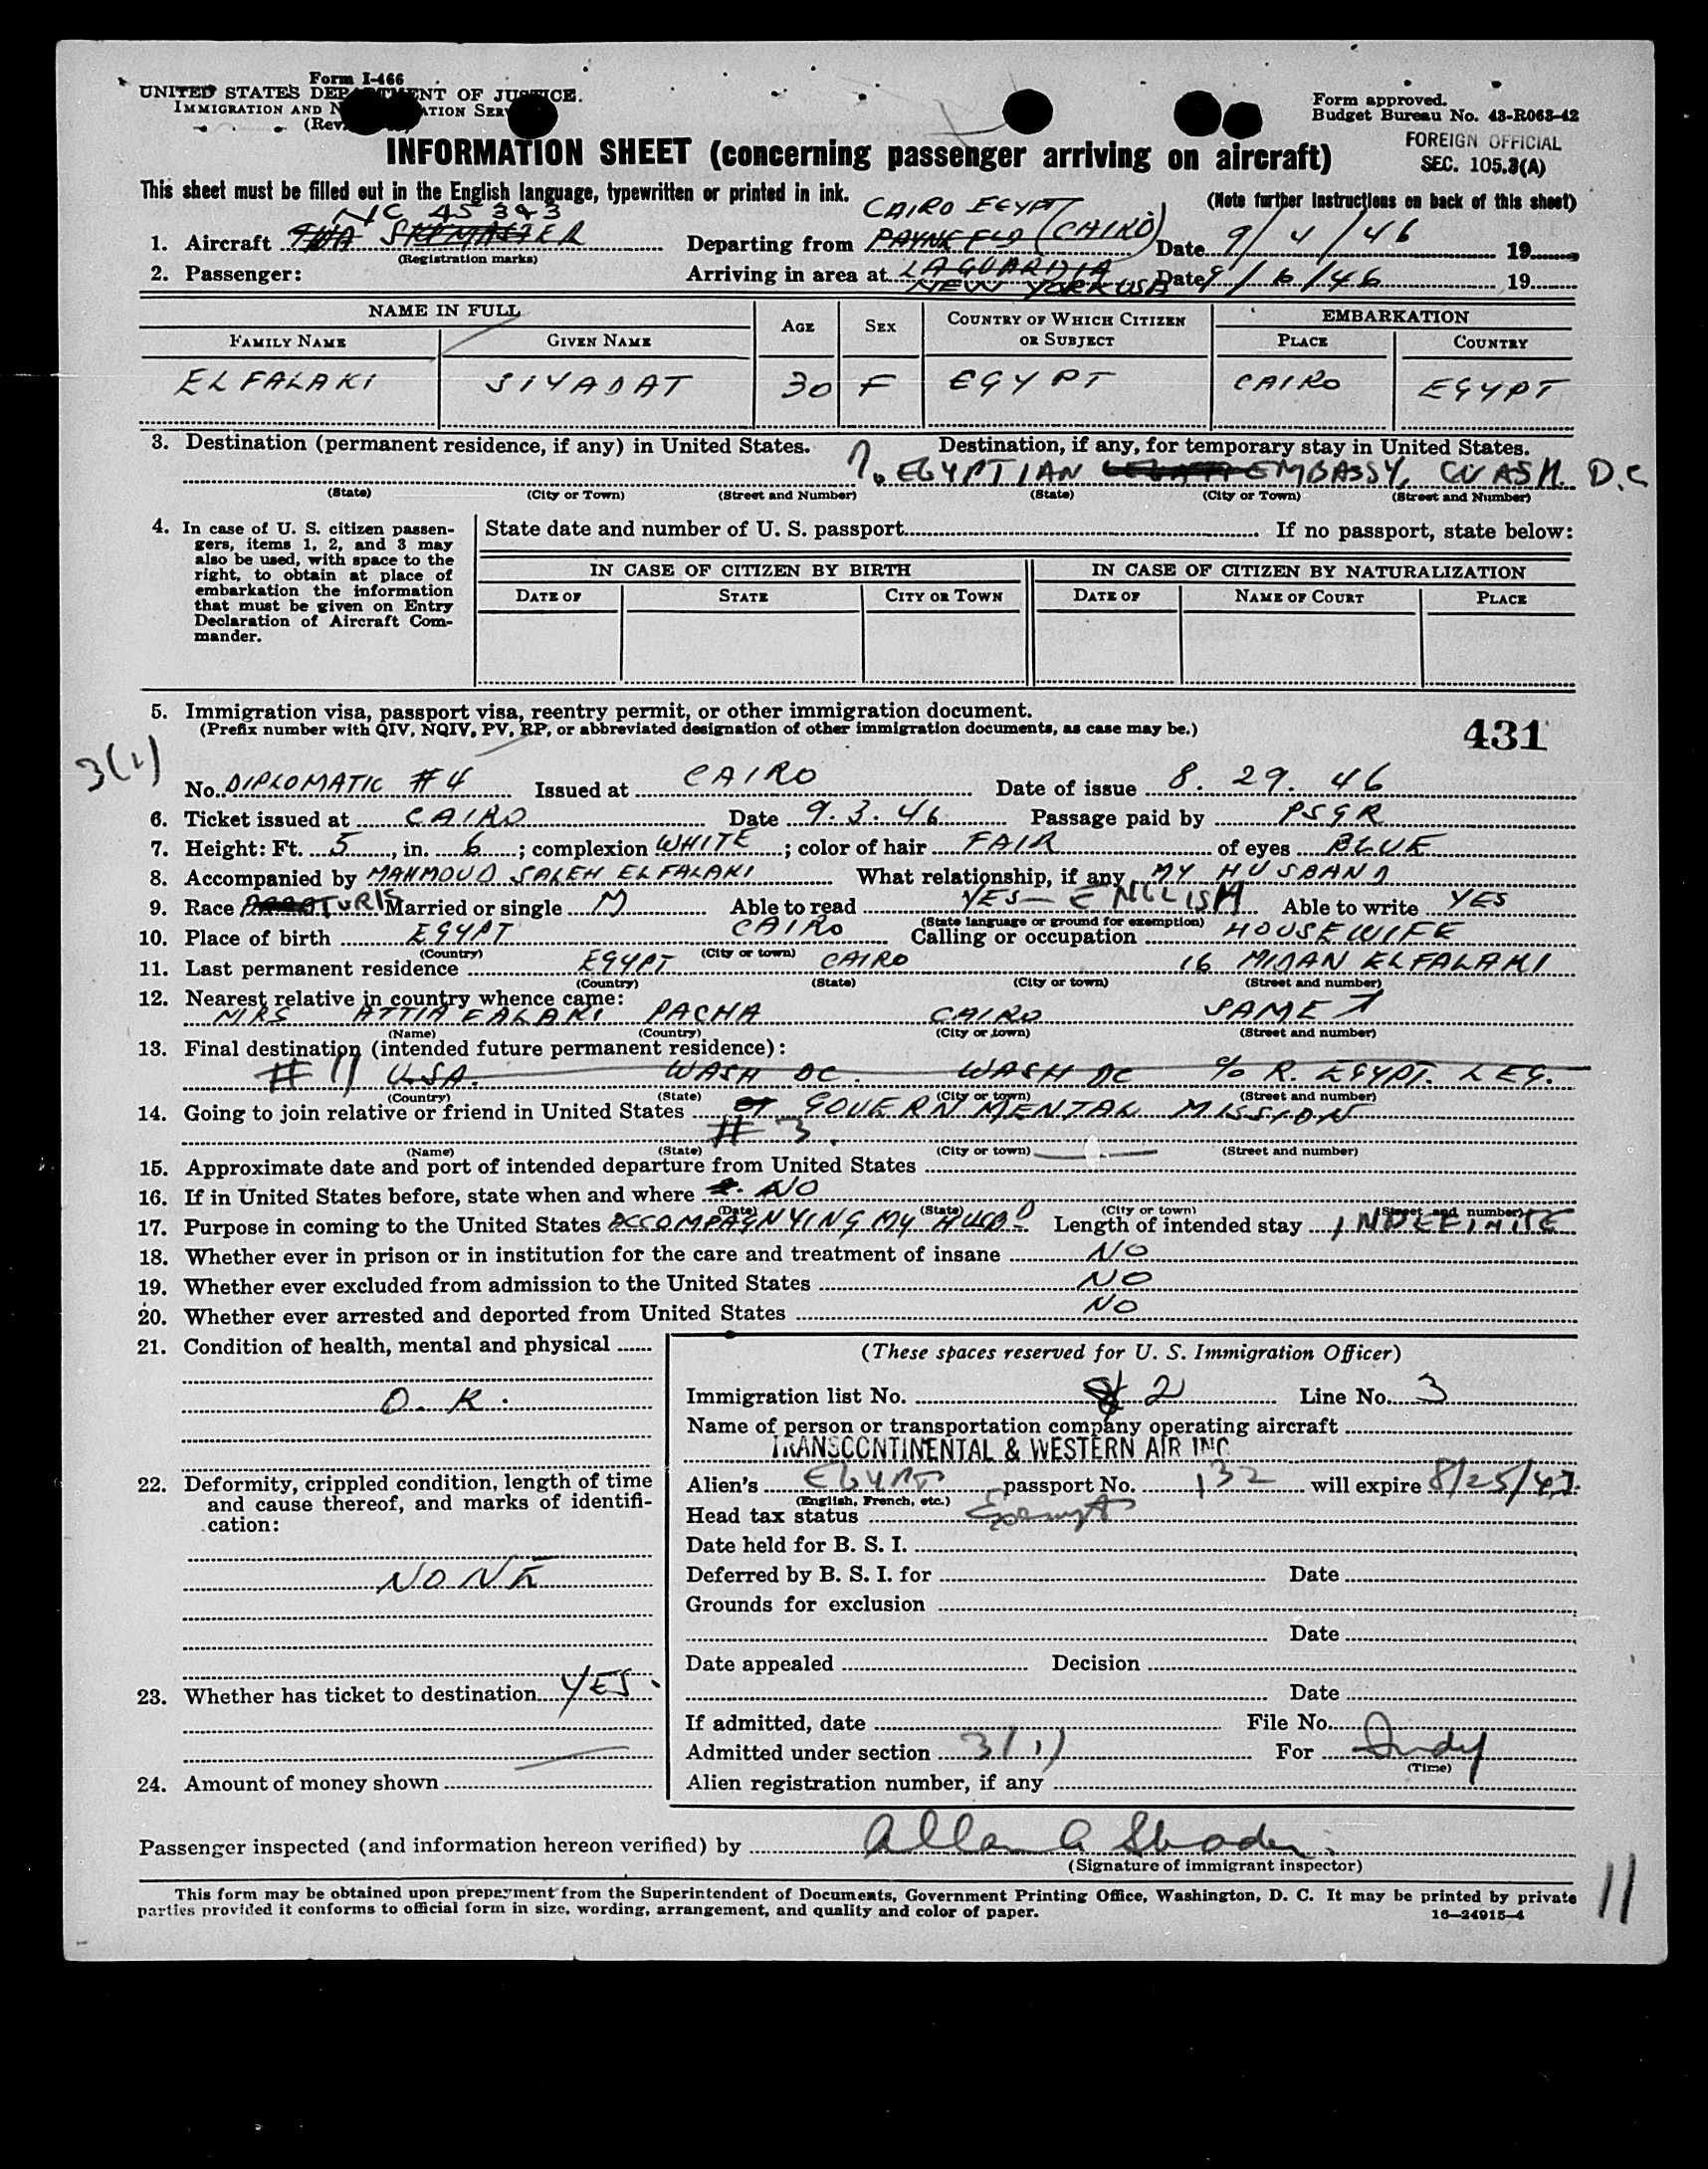 Form I-466
UNITED STATES DEPARTMENT OF JUSTICE.
IMMIGRATION AND NATURALIZATION SERVICE
(Rev.
Form approved.
Budget Bureau No. 43-R063-42
FOREIGN OFFICIAL
SEC. 105.3(A)
INFORMATION SHEET (concerning passenger arriving on aircraft)
This sheet must be filled out in the English language, typewritten or printed in ink.
(Note further instructions on back of this sheet)
NC 45343 CAIRO EGYPT
1. Aircraft TWA SKYMASTER Departing from PAYNE FLD (CAIRO) Date 9/4/46 19
(Registration marks)
2. Passenger: Arriving in area at LAGUARDIA Date 9/6/46 19
NEW YORK USA
NAME IN FULL AGE SEX COUNTRY OF WHICH CITIZEN OR SUBJECT EMBARKATION
FAMILY NAME GIVEN NAME PLACE COUNTRY
EL FALAKI SIYADAT 30 F EGYPT CAIRO EGYPT
3. Destination (permanent residence, if any) in United States. Destination, if any, for temporary stay in United States.
EGYPTIAN EMBASSY, WASH. D.C
(State) (City or Town) (Street and Number) (State) (City or Town) (Street and Number)
4. In case of U. S. citizen passengers, items 1, 2, and 3 may also be used, with space to the right, to obtain at place of embarkation the information that must be given on Entry Declaration of Aircraft Commander.
State date and number of U. S. passport If no passport, state below:
IN CASE OF CITIZEN BY BIRTH IN CASE OF CITIZEN BY NATURALIZATION
DATE OF STATE CITY OR TOWN DATE OF NAME OF COURT PLACE
5. Immigration visa, passport visa, reentry permit, or other immigration document.
(Prefix number with QIV, NQIV, PV, RP, or abbreviated designation of other immigration documents, as case may be.)
431
3(1)
No. DIPLOMATIC #4 Issued at CAIRO Date of issue 8. 29. 46
6. Ticket issued at CAIRO Date 9.3.46 Passage paid by PSGR
7. Height: Ft. 5, in. 6; complexion WHITE; color of hair FAIR of eyes BLUE
8. Accompanied by MAHMOUD SALEH EL FALAKI What relationship, if any MY HUSBAND
9. Race TURIS Married or single M Able to read YES - ENGLISH Able to write YES
(State language or ground for exemption)
10. Place of birth EGYPT CAIRO Calling or occupation HOUSEWIFE
(Country) (City or town)
11. Last permanent residence EGYPT CAIRO 16 MIDAN EL FALAKI
(Country) (State) (City or town) (Street and number)
12. Nearest relative in country whence came:
MRS ATTIA FALAKI PACHA CAIRO SAME
(Name) (Country) (City or town) (Street and number)
13. Final destination (intended future permanent residence):
#11 USA. WASH DC. WASH DC c/o R. EGYPT. LEG.
(Country) (State) (City or town) (Street and number)
14. Going to join relative or friend in United States GOVERNMENTAL MISSION
#3.
(Name) (State) (City or town) (Street and number)
15. Approximate date and port of intended departure from United States
16. If in United States before, state when and where NO
(Date) (State) (City or town) (Street and number)
17. Purpose in coming to the United States ACCOMPAGNYING MY HUSBD Length of intended stay INDEFINITE
18. Whether ever in prison or in institution for the care and treatment of insane NO
19. Whether ever excluded from admission to the United States NO
20. Whether ever arrested and deported from United States NO
21. Condition of health, mental and physical
O. K.
22. Deformity, crippled condition, length of time and cause thereof, and marks of identification:
NONE
23. Whether has ticket to destination YES.
24. Amount of money shown
(These spaces reserved for U. S. Immigration Officer)
Immigration list No. 2 Line No. 3
Name of person or transportation company operating aircraft
TRANSCONTINENTAL & WESTERN AIR INC
Alien's EGYPT passport No. 132 will expire 8/25/47
(English, French, etc.)
Head tax status Exempt
Date held for B. S. I.
Deferred by B. S. I. for Date
Grounds for exclusion
Date
Date appealed Decision
Date
If admitted, date File No.
Admitted under section 3(1) For Indef
(Time)
Alien registration number, if any
Passenger inspected (and information hereon verified) by Allan A
(Signature of immigrant inspector)
This form may be obtained upon prepayment from the Superintendent of Documents, Government Printing Office, Washington, D. C. It may be printed by private
parties provided it conforms to official form in size, wording, arrangement, and quality and color of paper.
16—24915-4
11